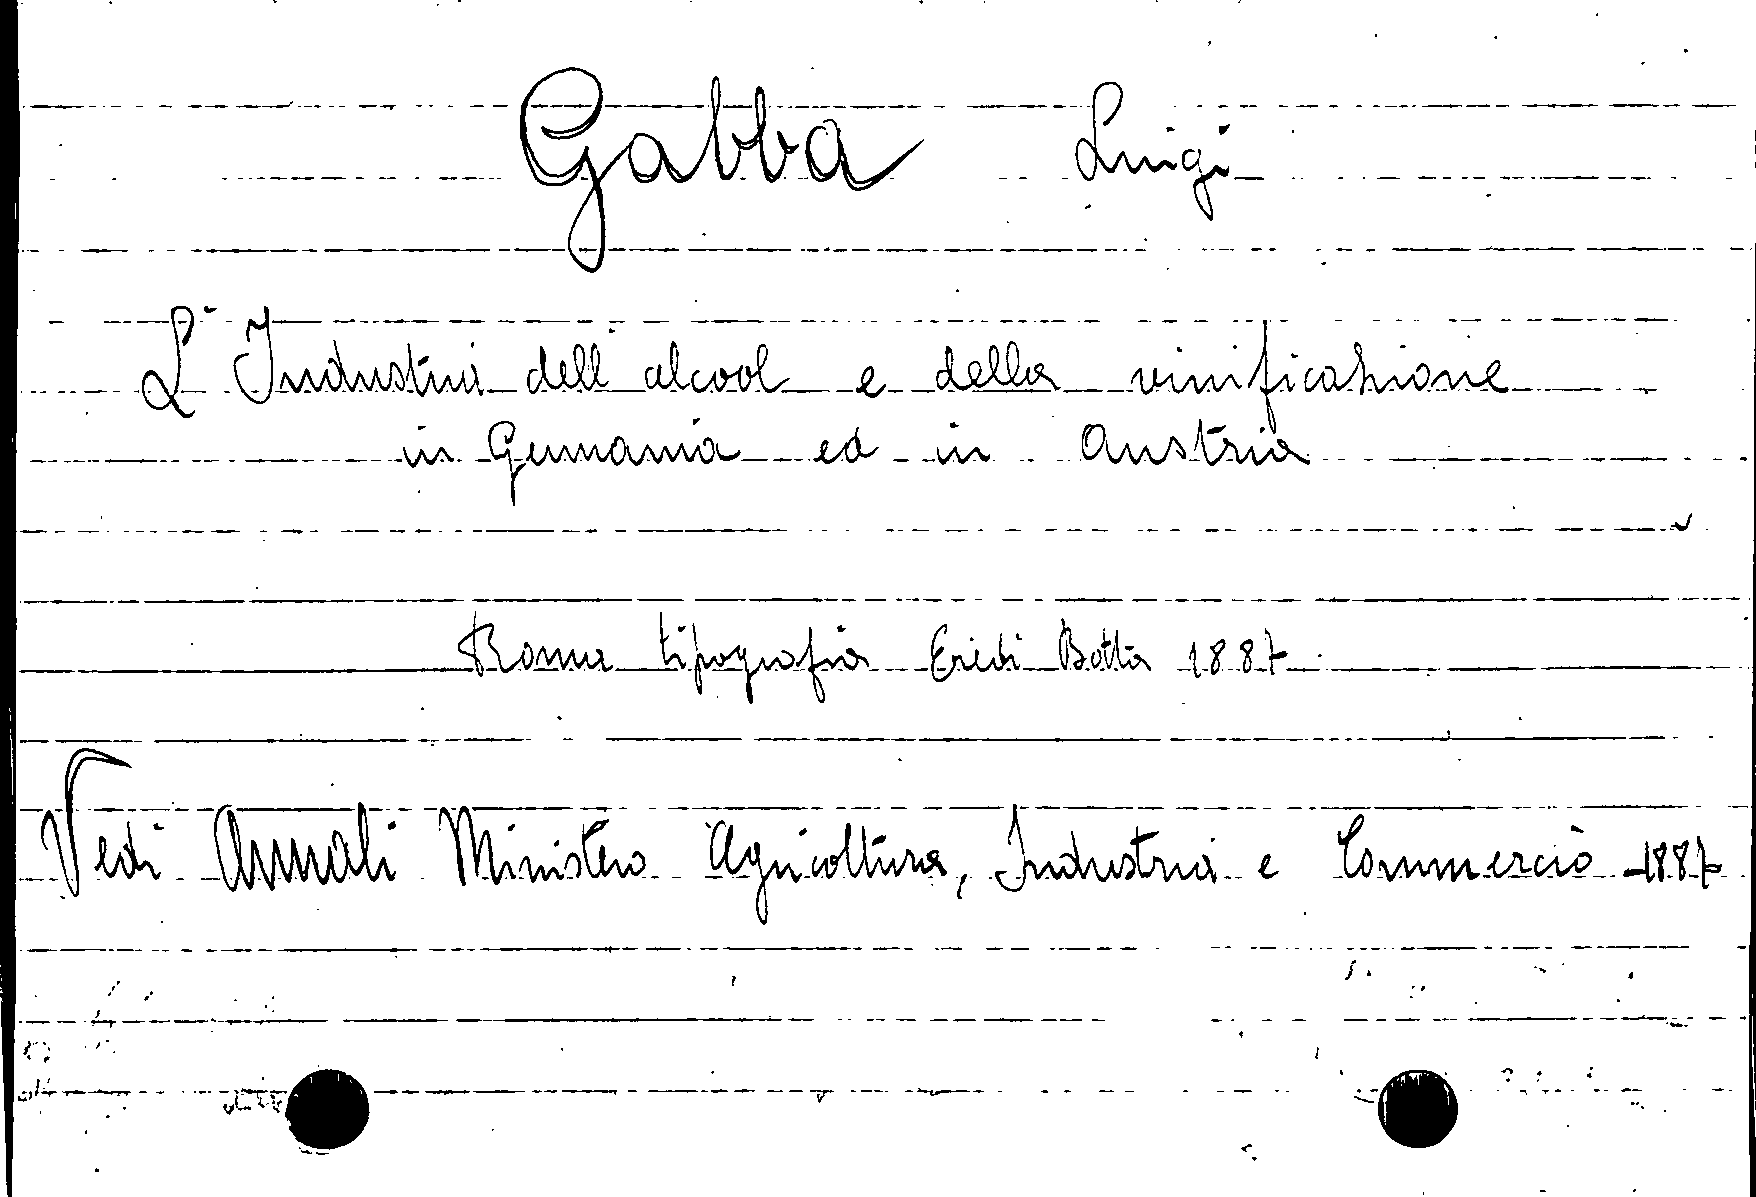 Gabba Luigi
L'Industria dell'alcool e della vinificazione
in Germania ed in Austria
Roma tipografia Eredi Botta 1887
Vedi Annali Ministero Agricoltura, Industria e Commercio 1887